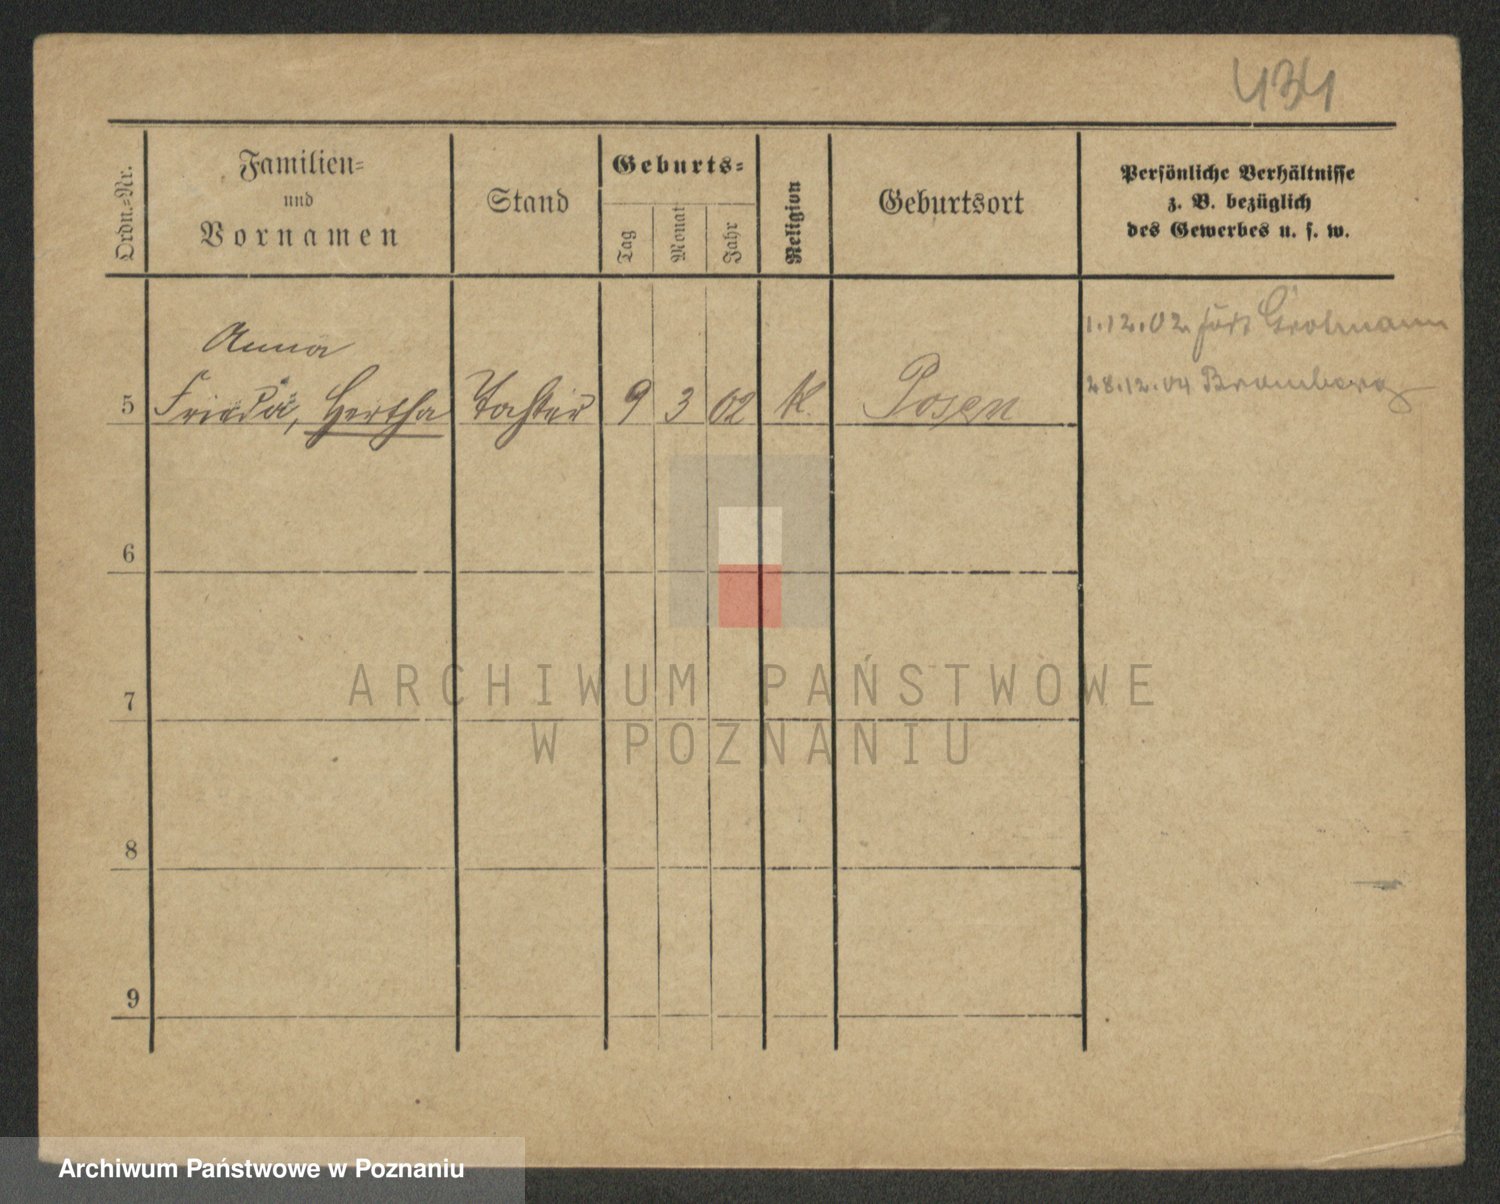 434
Ordn.-Nr.
Familien-
und
Vornamen
Stand
Geburts-
Tag
Monat
Jahr
Religion
Geburtsort
Persönliche Verhältnisse
z. B. bezüglich
des Gewerbes u. s. w.
1.12.02. Fort Grolmann
Anna
5 Frieda, Hertha Tochter 9 3 02 K. Posen
28.12.04 Bromberg
6
7
8
9
ARCHIWUM PAŃSTWOWE
W POZNANIU
Archiwum Państwowe w Poznaniu